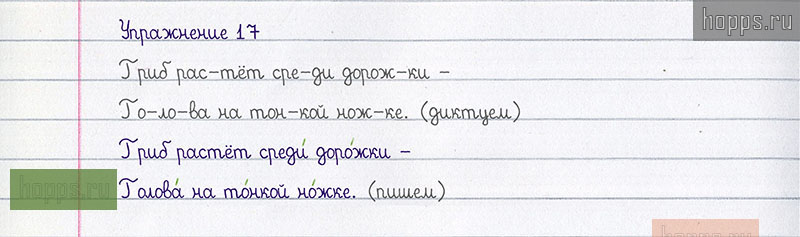 hopps.ru
Упражнение 17
Гриб рас-тёт сре-ди дорож-ки -
Го-ло-ва на тон-кой нож-ке. (диктуем)
Гриб растёт среди́ доро́жки -
hopps.ru
Голова́ на то́нкой но́жке. (пишем)
hopps.ru